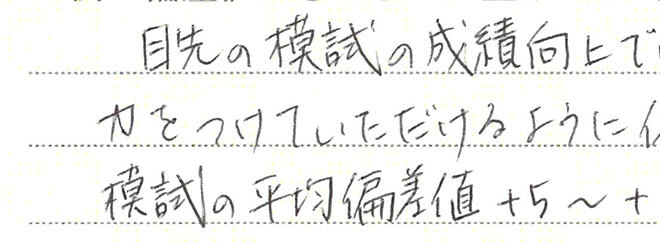 目先の模試の成績向上で
力をつけていただけるように
模試の平均偏差値 +5～+